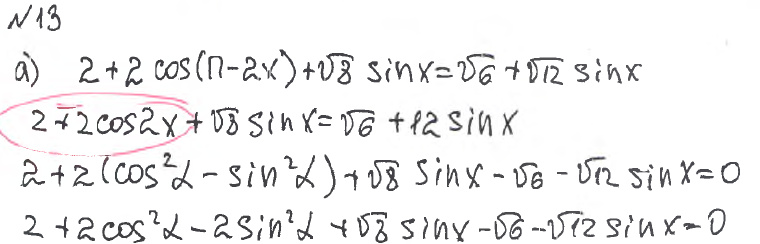 N13
а) 2+2 cos(π-2x)+√8 sinx=√6+√12 sinx
2+2cos2x+√8 sinx=√6+12sinx
2+2(cos²α-sin²α)+√8 sinx-√6-√12 sinx=0
2+2cos²α-2sin²α+√8 sinx-√6-√12 sinx=0